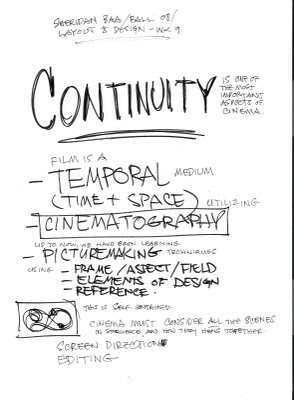 SHERIDAN BAA/BALL 08/
LAYOUT & DESIGN - WK 9
CONTINUITY
IS ONE OF
THE MOST
IMPORTANT
ASPECTS OF
CINEMA.
FILM IS A
- TEMPORAL MEDIUM
(TIME + SPACE) UTILIZING
- CINEMATOGRAPHY
UP TO NOW, WE HAVE BEEN LEARNING
- PICTUREMAKING TECHNIQUES
USING - FRAME/ASPECT/FIELD
- ELEMENTS OF DESIGN
- REFERENCE.
THIS IS SELF CONTAINED
CINEMA MUST CONSIDER ALL THE SCENES
IN SEQUENCE AND HOW THEY HANG TOGETHER.
SCREEN DIRECTION
EDITING